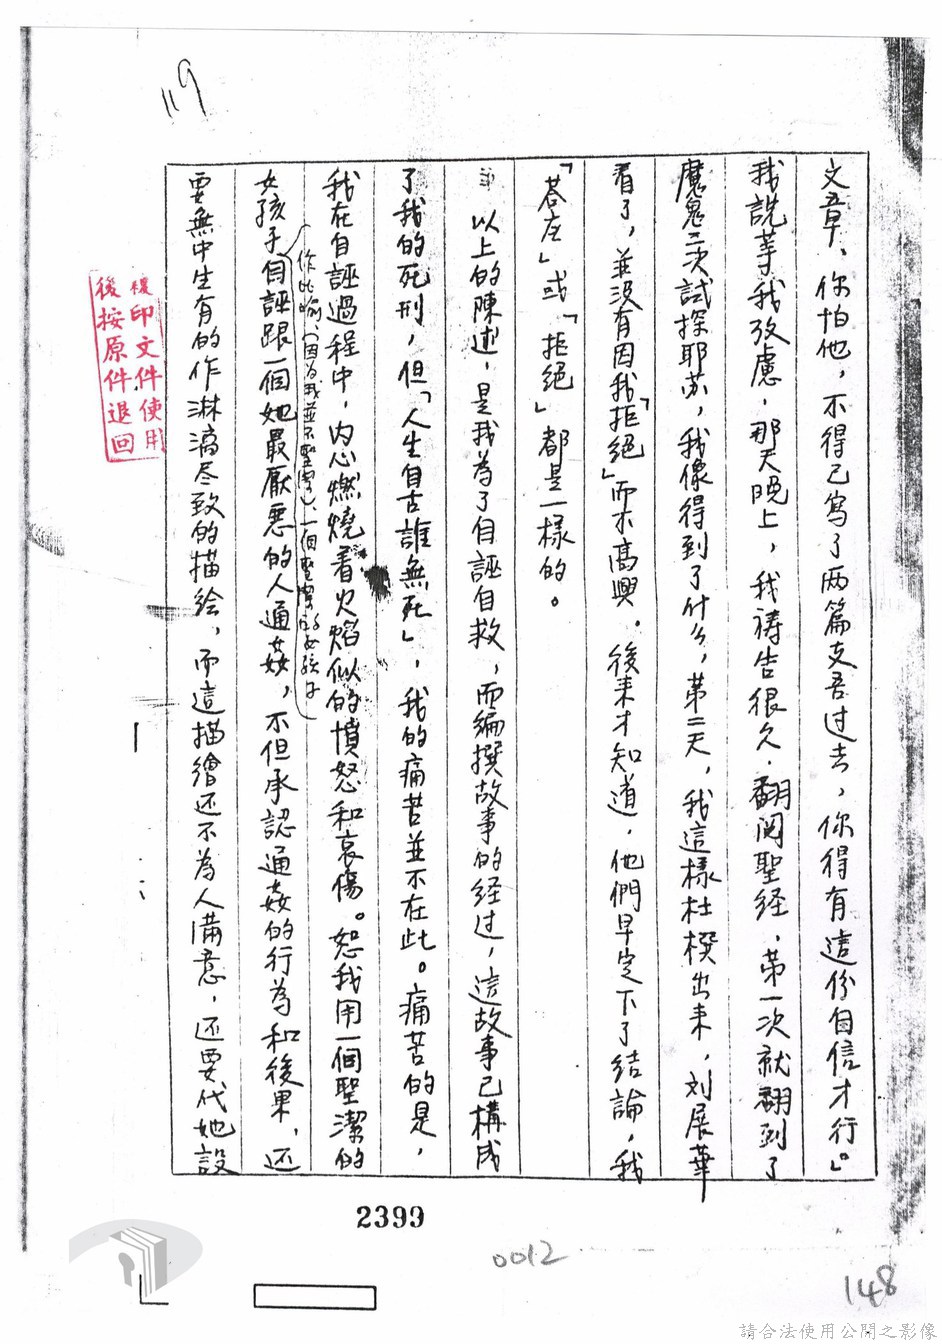 119
文章、你怕他，不得已寫了两篇支吾过去，你得有這份自信才行」。
我説等我攷慮．那天晚上，我祷告很久．翻阅聖经．第一次就翻到了
魔鬼三次試探耶苏，我像得到了什么，第二天，我這樣杜撰出来，刘展華
看了，並没有因我「拒绝」而不高興。後来才知道．他們早定下了结論，我
「荅应」或「拒绝」都是一樣的。
以上的陳述，是我為了自誣自救，而編撰故事的经过，這故事已構成
了我的死刑，但「人生自古誰無死」，我的痛苦並不在此。痛苦的是，
我在自誣過程中，内心燃燒着火焰似的憤怒和哀傷。恕我用一個聖潔的
作比喻、（因为我並不聖潔）、一個聖潔的女孩子
女孩子自誣跟一個她最厭恶的人通姦，不但承認通姦的行為和後果，还
要無中生有的作淋漓尽致的描绘，而這描繪还不為人满意，还要代她設
複印文件使用
後按原件退回
2399
0012
148
請合法使用公開之影像